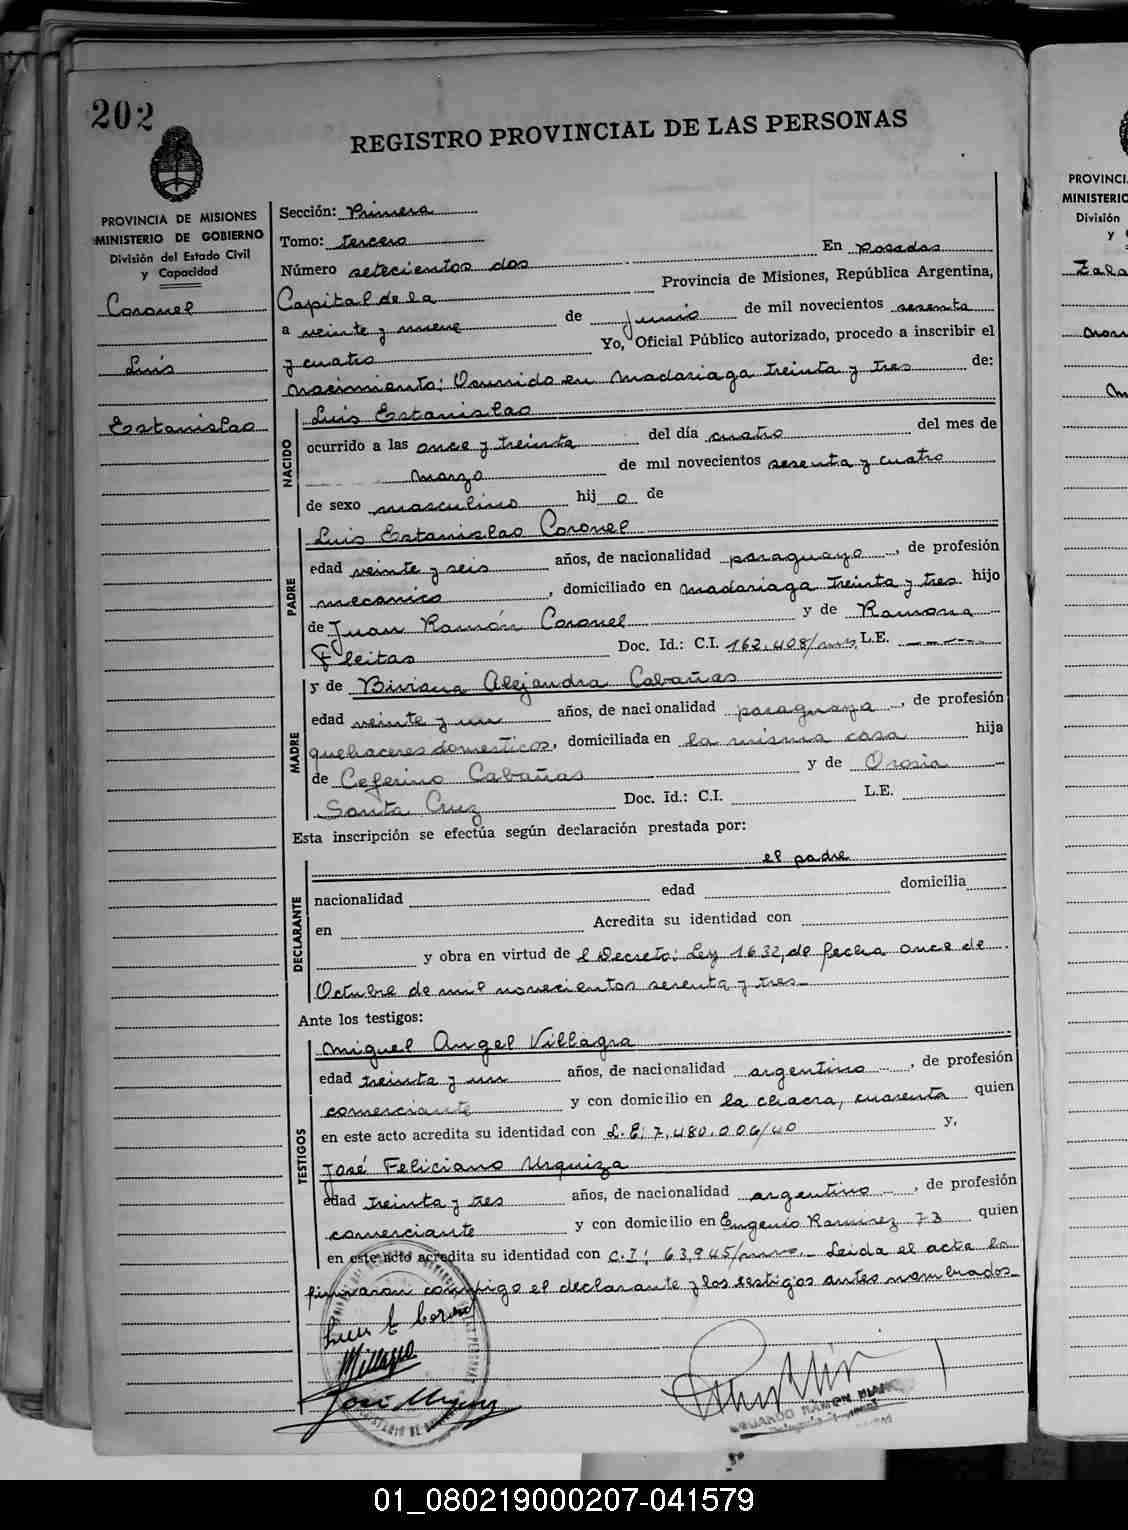 202
REGISTRO PROVINCIAL DE LAS PERSONAS
PROVINCIA DE MISIONES
MINISTERIO DE GOBIERNO
División del Estado Civil
y Capacidad
Coronel
Luis
Estanislao
Sección: Primera
Tomo: tercero
Número setecientos dos En Posadas
Capital de la Provincia de Misiones, República Argentina,
a veinte y nueve de Junio de mil novecientos sesenta
y cuatro Yo, Oficial Público autorizado, procedo a inscribir el
nacimiento: Ocurrido en Madariaga treinta y tres de:
NACIDO
Luis Estanislao
ocurrido a las once y treinta del día cuatro del mes de
marzo de mil novecientos sesenta y cuatro
de sexo masculino hij o de
PADRE
Luis Estanislao Coronel
edad veinte y seis años, de nacionalidad paraguayo, de profesión
mecanico, domiciliado en Madariaga treinta y tres hijo
de Juan Ramón Coronel y de Ramona
Fleitas Doc. Id.: C.I. 162.408/mns L.E.
MADRE
y de Biviana Alejandra Cabañas
edad veinte y un años, de nacionalidad paraguaya, de profesión
quehaceres domesticos, domiciliada en la misma casa hija
de Ceferino Cabañas y de Orosia
Santa Cruz Doc. Id.: C.I. L.E.
Esta inscripción se efectúa según declaración prestada por:
DECLARANTE
el padre
nacionalidad edad domicilia
en Acredita su identidad con
y obra en virtud de l Decreto: Ley 1632, de fecha once de
Octubre de mil novecientos sesenta y tres_
Ante los testigos:
TESTIGOS
Miguel Angel Villagra
edad treinta y un años, de nacionalidad argentino, de profesión
comerciante y con domicilio en la chacra, cuarenta quien
en este acto acredita su identidad con L.E: 7,480.006/40 y,
José Feliciano Urquiza
edad treinta y tres años, de nacionalidad argentino, de profesión
comerciante y con domicilio en Eugenio Ramirez 73 quien
en este acto acredita su identidad con C.I: 63,945/mns_ Leida el acta la
firmaron conmigo el declarante y los testigos antes nombrados_
Luis E Coronel
Villagra
José Urquiza
RAMON
PROVINCI
MINISTERIO
División
y
01_080219000207-041579